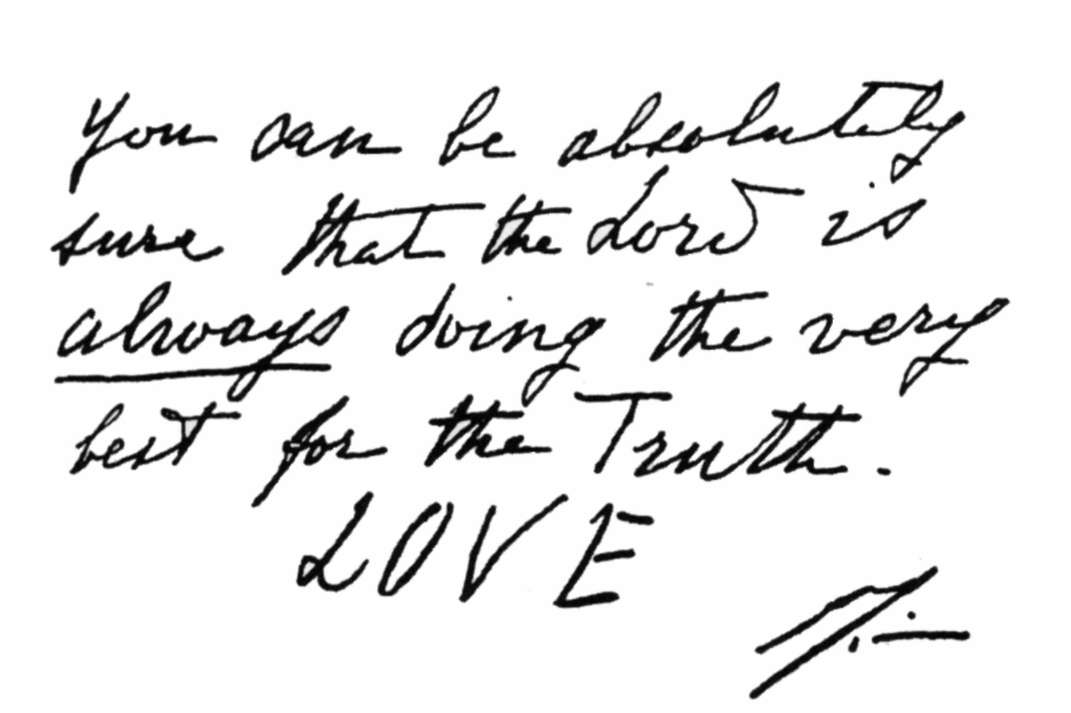 You can be absolutely
sure that the Lord is
always doing the very
best for the Truth.
LOVE